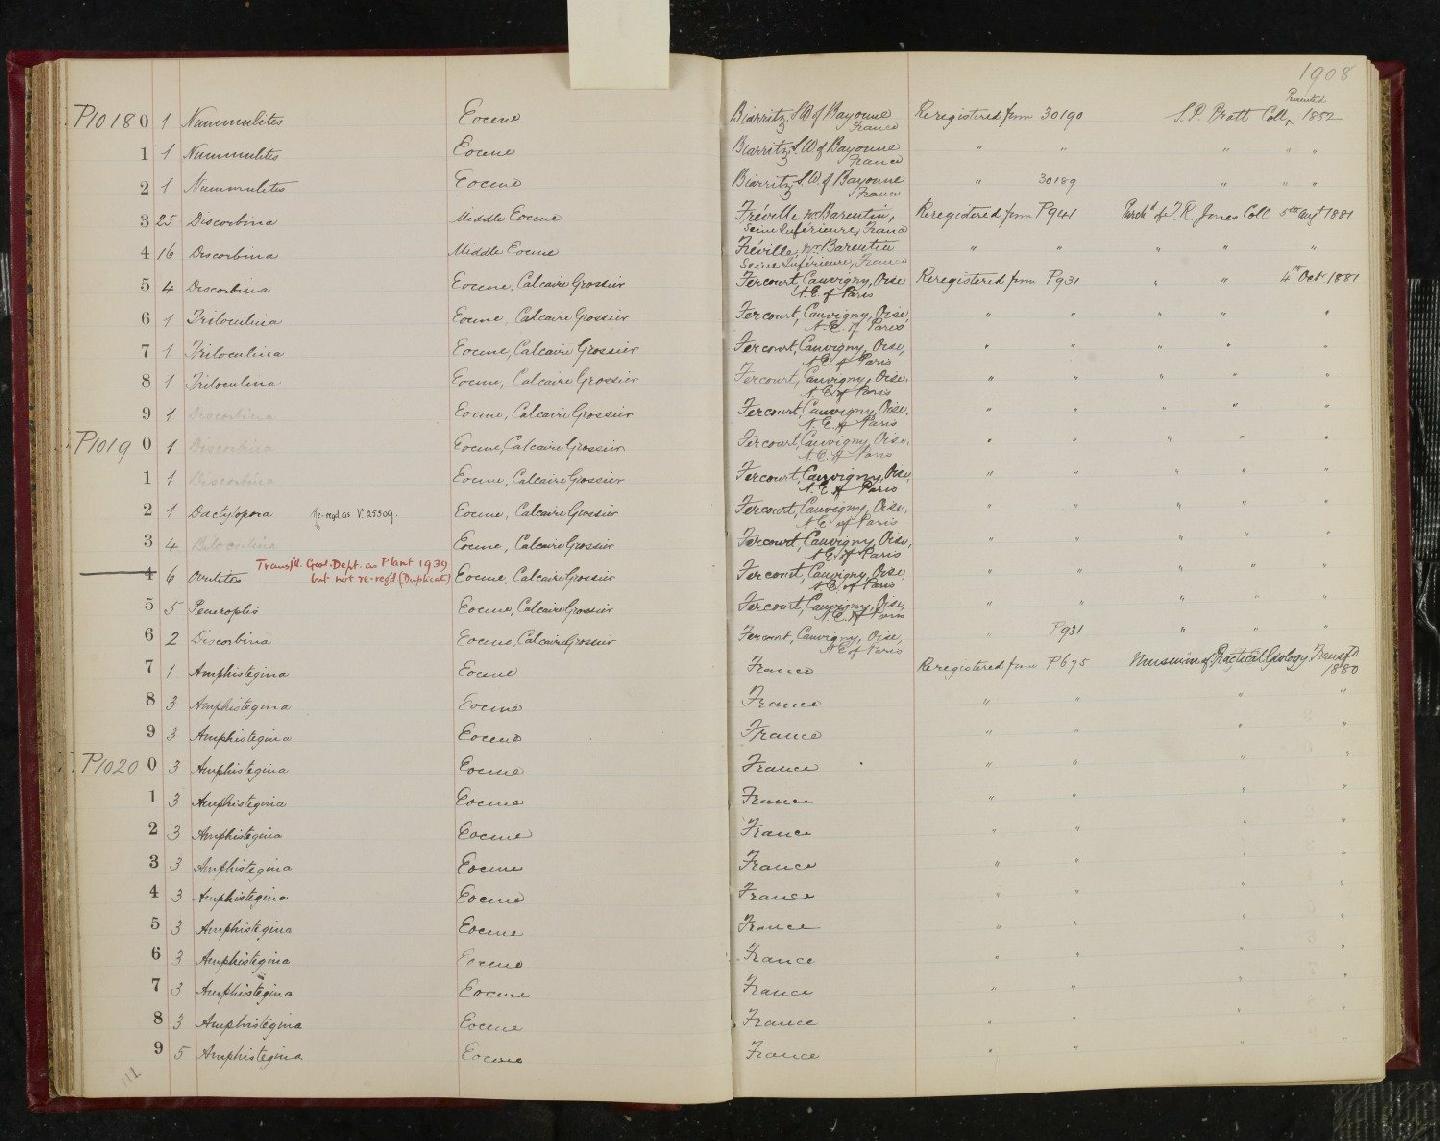 1908
P1018 0 1 Nummulites Eocene Biarritz, S.W of Bayonne Reregistered from 30190 S.P. Pratt Coll, Presented 1852
France
1 1 Nummulites Eocene Biarritz, S.W of Bayonne " " " " "
France
2 1 Nummulites Eocene Biarritz, S.W. of Bayonne " 30189 " " "
France
3 25 Discorbina Middle Eocene Fréville, nr. Barentin, Reregistered from P941 Purchd of T.R. Jones Coll 5th Augt 1881
Seine Inférieure, France
4 16 Discorbina Middle Eocene Fréville, nr Barentin " " " " "
Seine Inférieure, France
5 4 Discorbina Eocene, Calcaire Grossier Fercourt, Cauvigny, Oise Reregistered from P931 " " 4th Oct 1881
N.E. of Paris
6 1 Triloculina Eocene, Calcaire Grossier Fercourt, Cauvigny, Oise, " " " " "
N.E. of Paris
7 1 Triloculina Eocene, Calcaire Grossier Fercourt, Cauvigny, Oise, " " " " "
N.E. of Paris
8 1 Triloculina Eocene, Calcaire Grossier Fercourt, Cauvigny, Oise, " " " " "
N.E. of Paris
9 1 Discorbina Eocene, Calcaire Grossier Fercourt, Cauvigny, Oise, " " " " "
N.E. of Paris
P1019 0 1 Discorbina Eocene, Calcaire Grossier Fercourt, Cauvigny, Oise, " " " " "
N.E. of Paris
1 1 Discorbina Eocene, Calcaire Grossier Fercourt, Cauvigny, Oise, " " " " "
N.E. of Paris
2 1 Dactylopora Re-regd as V.25309. Eocene, Calcaire Grossier Fercourt, Cauvigny, Oise, " " " " "
N.E. of Paris
3 4 Biloculina Eocene, Calcaire Grossier Fercourt, Cauvigny, Oise, " " " " "
N.E. of Paris
Transfd. Geol. Dept. as Plant 1939
4 6 Ovulites but not re-reg'd (Duplicate) Eocene, Calcaire Grossier Fercourt, Cauvigny, Oise, " " " " "
N.E. of Paris
5 5 Peneroplis Eocene, Calcaire Grossier Fercourt, Cauvigny, Oise, " " " " "
N.E. of Paris
6 2 Discorbina Eocene, Calcaire Grossier Fercourt, Cauvigny, Oise, " P931 " " "
N.E. of Paris
7 1 Amphistegina Eocene France Reregistered from P695 Museum of Practical Geology Transfd
1880
8 3 Amphistegina Eocene France " " " "
9 3 Amphistegina Eocene France " " " "
P1020 0 3 Amphistegina Eocene France " " " "
1 3 Amphistegina Eocene France " " " "
2 3 Amphistegina Eocene France " " " "
3 3 Amphistegina Eocene France " " " "
4 3 Amphistegina Eocene France " " " "
5 3 Amphistegina Eocene France " " " "
6 3 Amphistegina Eocene France " " " "
7 3 Amphistegina Eocene France " " " "
8 3 Amphistegina Eocene France " " " "
9 5 Amphistegina Eocene France " " " "